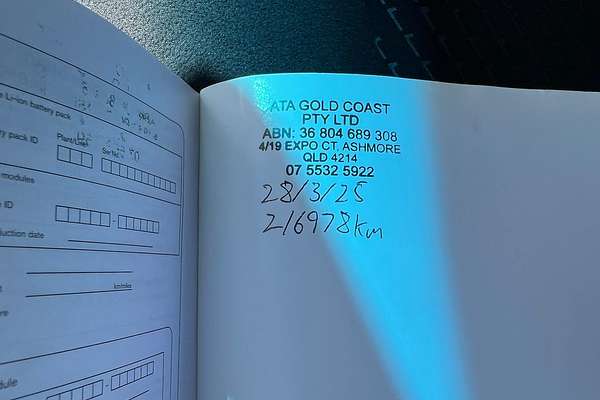 Li-ion battery pack
pack ID
Plant/Line
Ser No
modules
ID
duction date
km/miles
dule
ATA GOLD COAST
PTY LTD
ABN: 36 804 689 308
4/19 EXPO CT, ASHMORE
QLD 4214
07 5532 5922
28/3/25
216978km